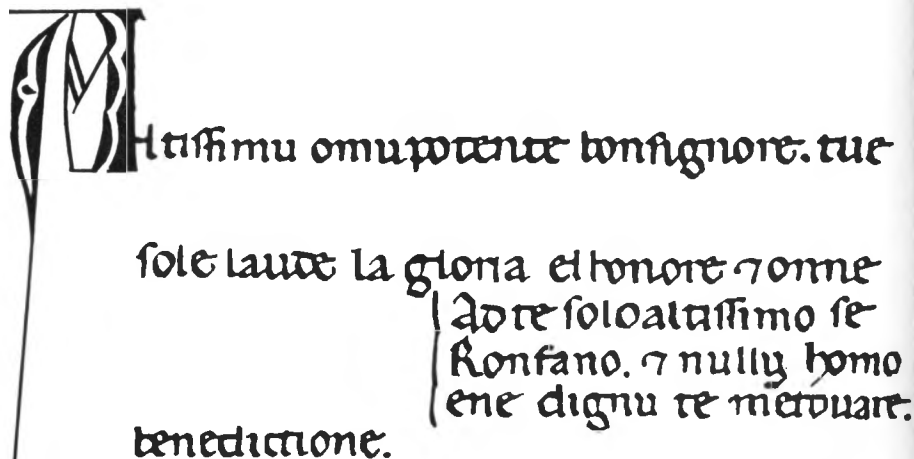 Altissimu omnipotente bonsignore. tue
sole laude la gloria elhonore ⁊ onne
Ad te solo altissimo se
Konfano. ⁊ nullu homo
ene dignu te mentouare.
benedictione.